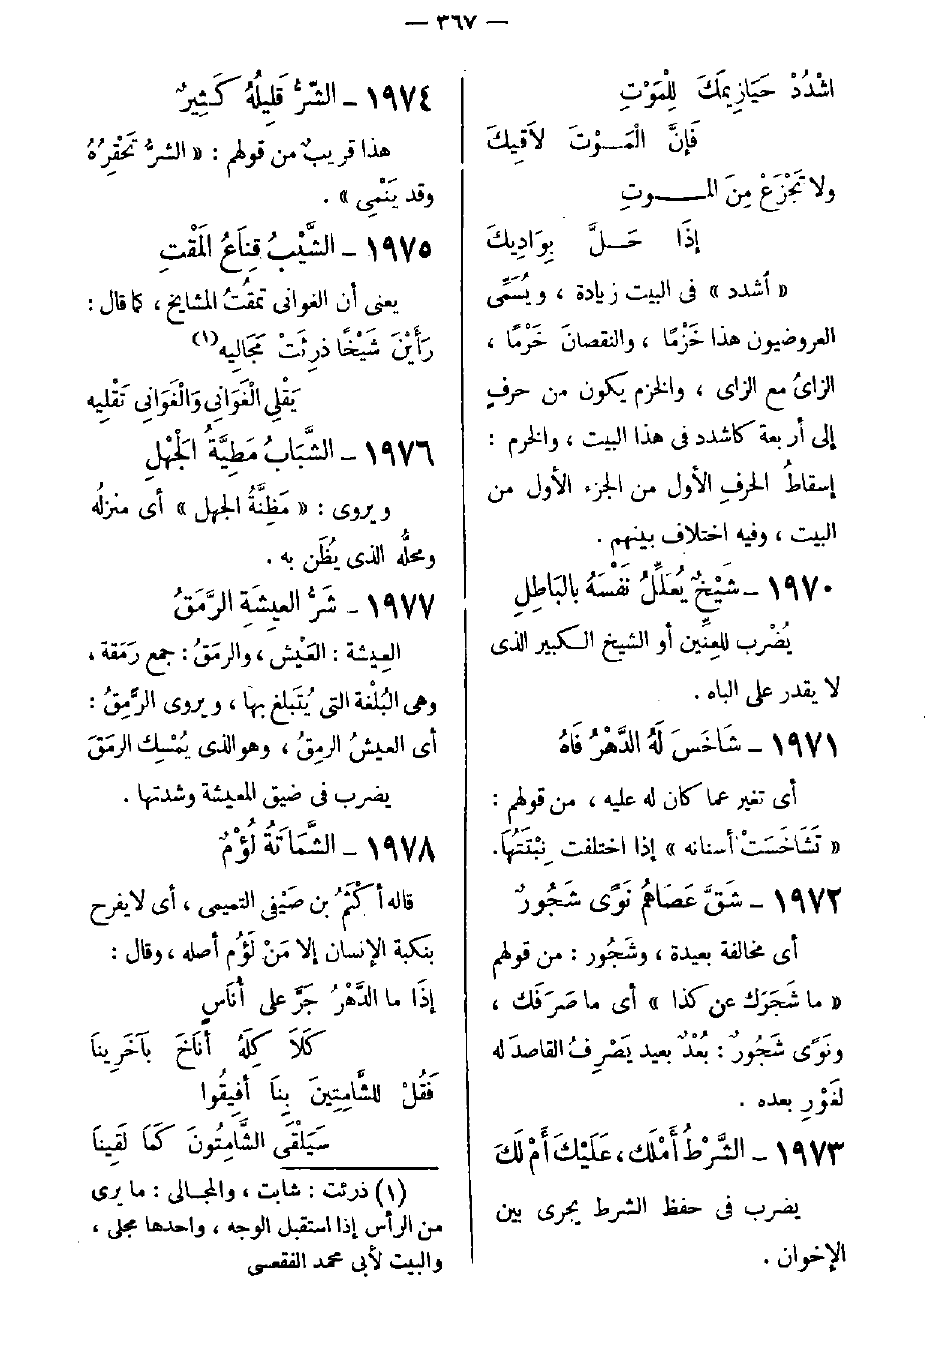 — ٣٦٧ —
اشْدُدْ حَيَازِيمَكَ لِلْمَوْتِ
فَإِنَّ الْمَـوْتَ لاَقِيكَ
ولا تَجْزَعْ مِنَ المـــوتِ
إِذَا حَـلَّ بِوَادِيكَ
« أشدد » فى البيت زيادة ، ويُسَمِّى
العروضيون هذا خَزْمًا ، والنقصانَ خَرْمًا ،
الزاىُ مع الزاى ، والخزم يكون من حرفٍ
إلى أربعة كاشدد فى هذا البيت ، والخرم :
إسقاطُ الحرفِ الأول من الجزء الأول من
البيت ، وفيه اختلاف بينهم .
١٩٧٠ – شَيْخٌ يُعَلِّلُ نَفْسَهُ بالبَاطِلِ
يُضْرب للعِنِّين أو الشيخ الكبير الذى
لا يقدر على الباه .
١٩٧١ – شَاخَسَ لَهُ الدَّهْرُ فَاهُ
أى تغير عما كان له عليه ، من قولهم :
« تَشَاخَسَتْ أسنانه » إذا اختلفت نِبْتَتُهَا.
١٩٧٢ – شَقَّ عَصَاهُمْ نَوًى شَجُورٌ
أى مخالفة بعيدة ، وشَجُور : من قولهم
« ما شَجَرَك عن كذا » أى ما صَرَفَك ،
ونَوًى شَجُورٌ : بُعْدٌ بعيد يَصْرِفُ القاصدَ له
لغَوْرِ بعده .
١٩٧٣ – الشَّرْطُ أَمْلَك، عَلَيْكَ أَمْ لَكَ
يضرب فى حفظ الشرط يجرى بين
الإخوان .
١٩٧٤ – الشَّرُّ قَلِيلُهُ كَثِيرٌ
هذا قريبٌ من قولهم : « الشرُّ تَحْقِرُهُ
وقد يَنْمِى » .
١٩٧٥ – الشَّيْبُ قِنَاعُ المَقْتِ
يعنى أن الغوانى تمقُتُ المشايخ ، كما قال :
رَأَيْنَ شَيْخًا ذرِئَتْ مَجَالِيه (١)
يَقْلِى الْغَوَانِى وَالْغَوَانِى تَقْلِيه
١٩٧٦ – الشَّبَابُ مَطِيَّةُ الجَهْلِ
ويروى : « مَظِنَّةُ الجهل » أى منزلُه
ومحلُّه الذى يُظَن به .
١٩٧٧ – شَرُّ العِيشَةِ الرَّمَقُ
العِيشة : العَيْش ، والرمَقُ : جمع رَمَقة ،
وهى البُلْغة التى يُتَبلغ بها ، ويروى الرَّمِقُ :
أى العيشُ الرمِقُ ، وهو الذى يُمْسِك الرمَقَ
يضرب فى ضيق المعيشة وشدتها .
١٩٧٨ – الشَّمَاتَةُ لُؤْمٌ
قاله أكْثَمُ بن صَيْفى التميمى ، أى لا يفرح
بنكبة الإنسان إلا مَنْ لَؤُم أصله ، وقال :
إِذَا ما الدَّهْرُ جَرَّ على أُنَاسٍ
كَلاَ كِلَهُ أنَاخَ بآخَرِينَا
فَقُلْ للشَّامِتِينَ بِنَا أفِيقُوا
سَيَلْقَى الشَّامِتُونَ كَمَا لَقِينَا
(١) ذرئت : شابت ، والمجالى : ما يرى
من الرأس إذا استقبل الوجه ، واحدها مجلى ،
والبيت لأبى محمد الفقعسى